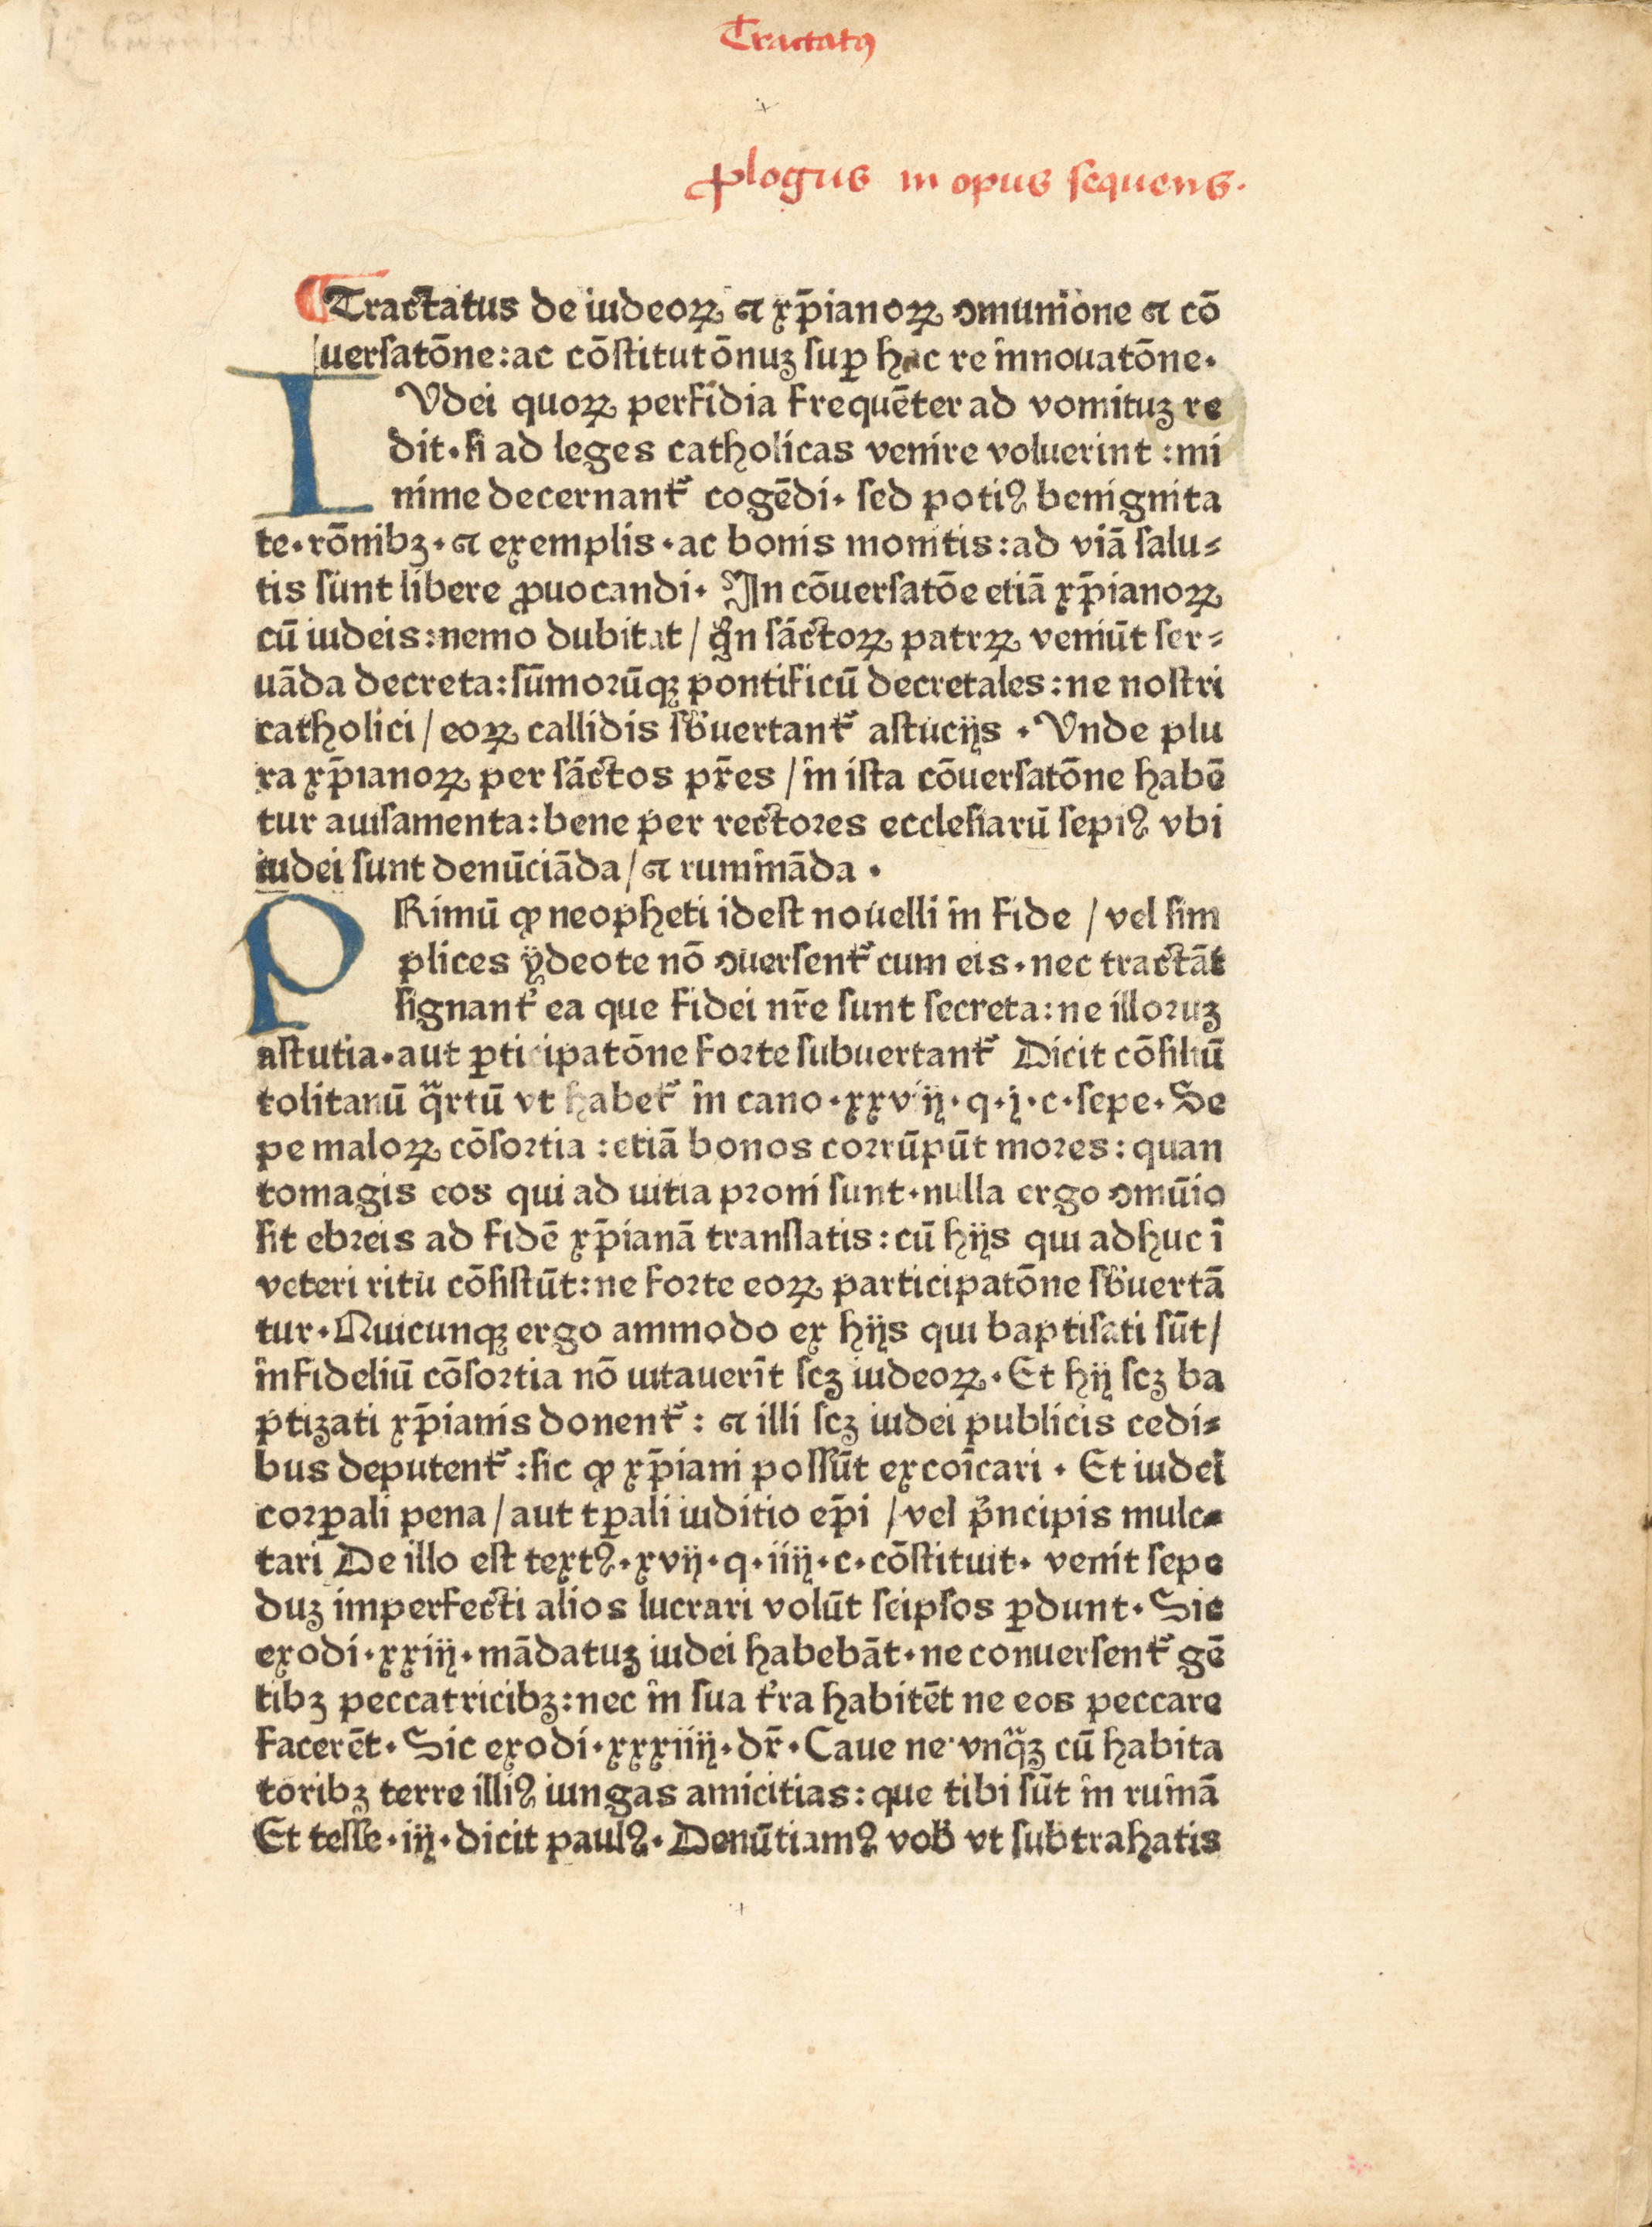 Tractatꝰ
ꝓlogus in opus sequens.
Tractatus de iudeoꝝ ⁊ xp̄ianoꝝ ꝯmunione ⁊ cō
uersatōne: ac cōstitutōnuꝫ suꝑ hac re innouatōne.
IVdei quoꝝ perfidia frequēter ad vomituꝫ re
dit. si ad leges catholicas venire voluerint: mi
nime decernant᷑ cogēdi. sed potiꝰ benignita
te. rōnibꝫ. ⁊ exemplis. ac bonis monitis: ad viā salu⸗
tis sunt libere ꝓuocandi. In cōuersatōe etiā xp̄ianoꝝ
cū iudeis: nemo dubitat / qͥn sāctoꝝ patrꝝ veniūt ser⸗
uāda decreta: sūmorūqꝫ pontificū decretales: ne nostri
catholici / eoꝝ callidis sb̾uertant᷑ astucijs. Vnde plu
ra xp̄ianoꝝ per sāctos pr̄es / in ista cōuersatōne habē
tur auisamenta: bene per rectores ecclesiarū sepiꝰ vbi
iudei sunt denūciāda / ⁊ rumināda.
PRimū ꝙ neopheti idest nouelli in fide / vel sim
plices ydeote nō ꝯuersent᷑ cum eis. nec tractāt
signant᷑ ea que fidei nr̄e sunt secreta: ne illoruꝫ
astutia. aut ꝑticipatōne forte subuertant᷑ Dicit cōsiliū
tolitanū qͣrtū vt habet᷑ in cano. xxvij. q. j. c. sepe. Se
pe maloꝝ cōsortia: etiā bonos corrūpūt mores: quan
tomagis eos qui ad uitia proni sunt. nulla ergo ꝯmūio
sit ebreis ad fidē xp̄ianā translatis: cū hijs qui adhuc ī
veteri ritu cōsistūt: ne forte eoꝝ participatōne sb̾uertā
tur. Quicunqꝫ ergo ammodo ex hijs qui baptisati sūt /
infideliū cōsortia nō uitauerīt scꝫ iudeoꝝ. Et hij scꝫ ba
ptizati xp̄ianis donent᷑: ⁊ illi scꝫ iudei publicis cedi⸗
bus deputent᷑: sic ꝙ xp̄iani possūt excoīcari. Et iudei
corꝑali pena / aut tꝑali iuditio ep̄i / vel pͥncipis mulc⸗
tari De illo est textꝰ. xvij. q. iiij. c. cōstituit. venit sepe
duꝫ imperfecti alios lucrari volūt seipsos ꝑdunt. Sic
exodi. xxiij. mādatuꝫ iudei habebāt. ne conuersent᷑ gē
tibꝫ peccatricibꝫ: nec in sua t᷑ra habitēt ne eos peccare
facerēt. Sic exodi. xxxiiij. dr̄. Caue ne vnqͣꝫ cū habita
toribꝫ terre illiꝰ iungas amicitias: que tibi sūt in ruinā
Et tesse. iij. dicit paulꝰ. Denūtiamꝰ vob̾ vt subtrahatis